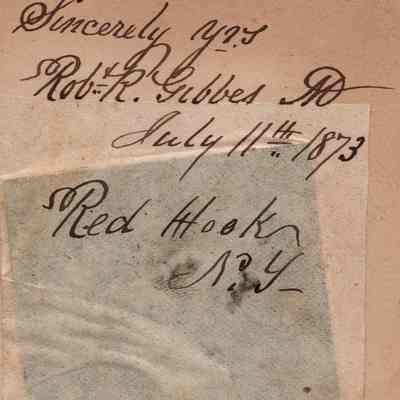 Sincerely Yrs
Robt. R. Gibbes MD
July 11th 1873
Red Hook
N. Y.